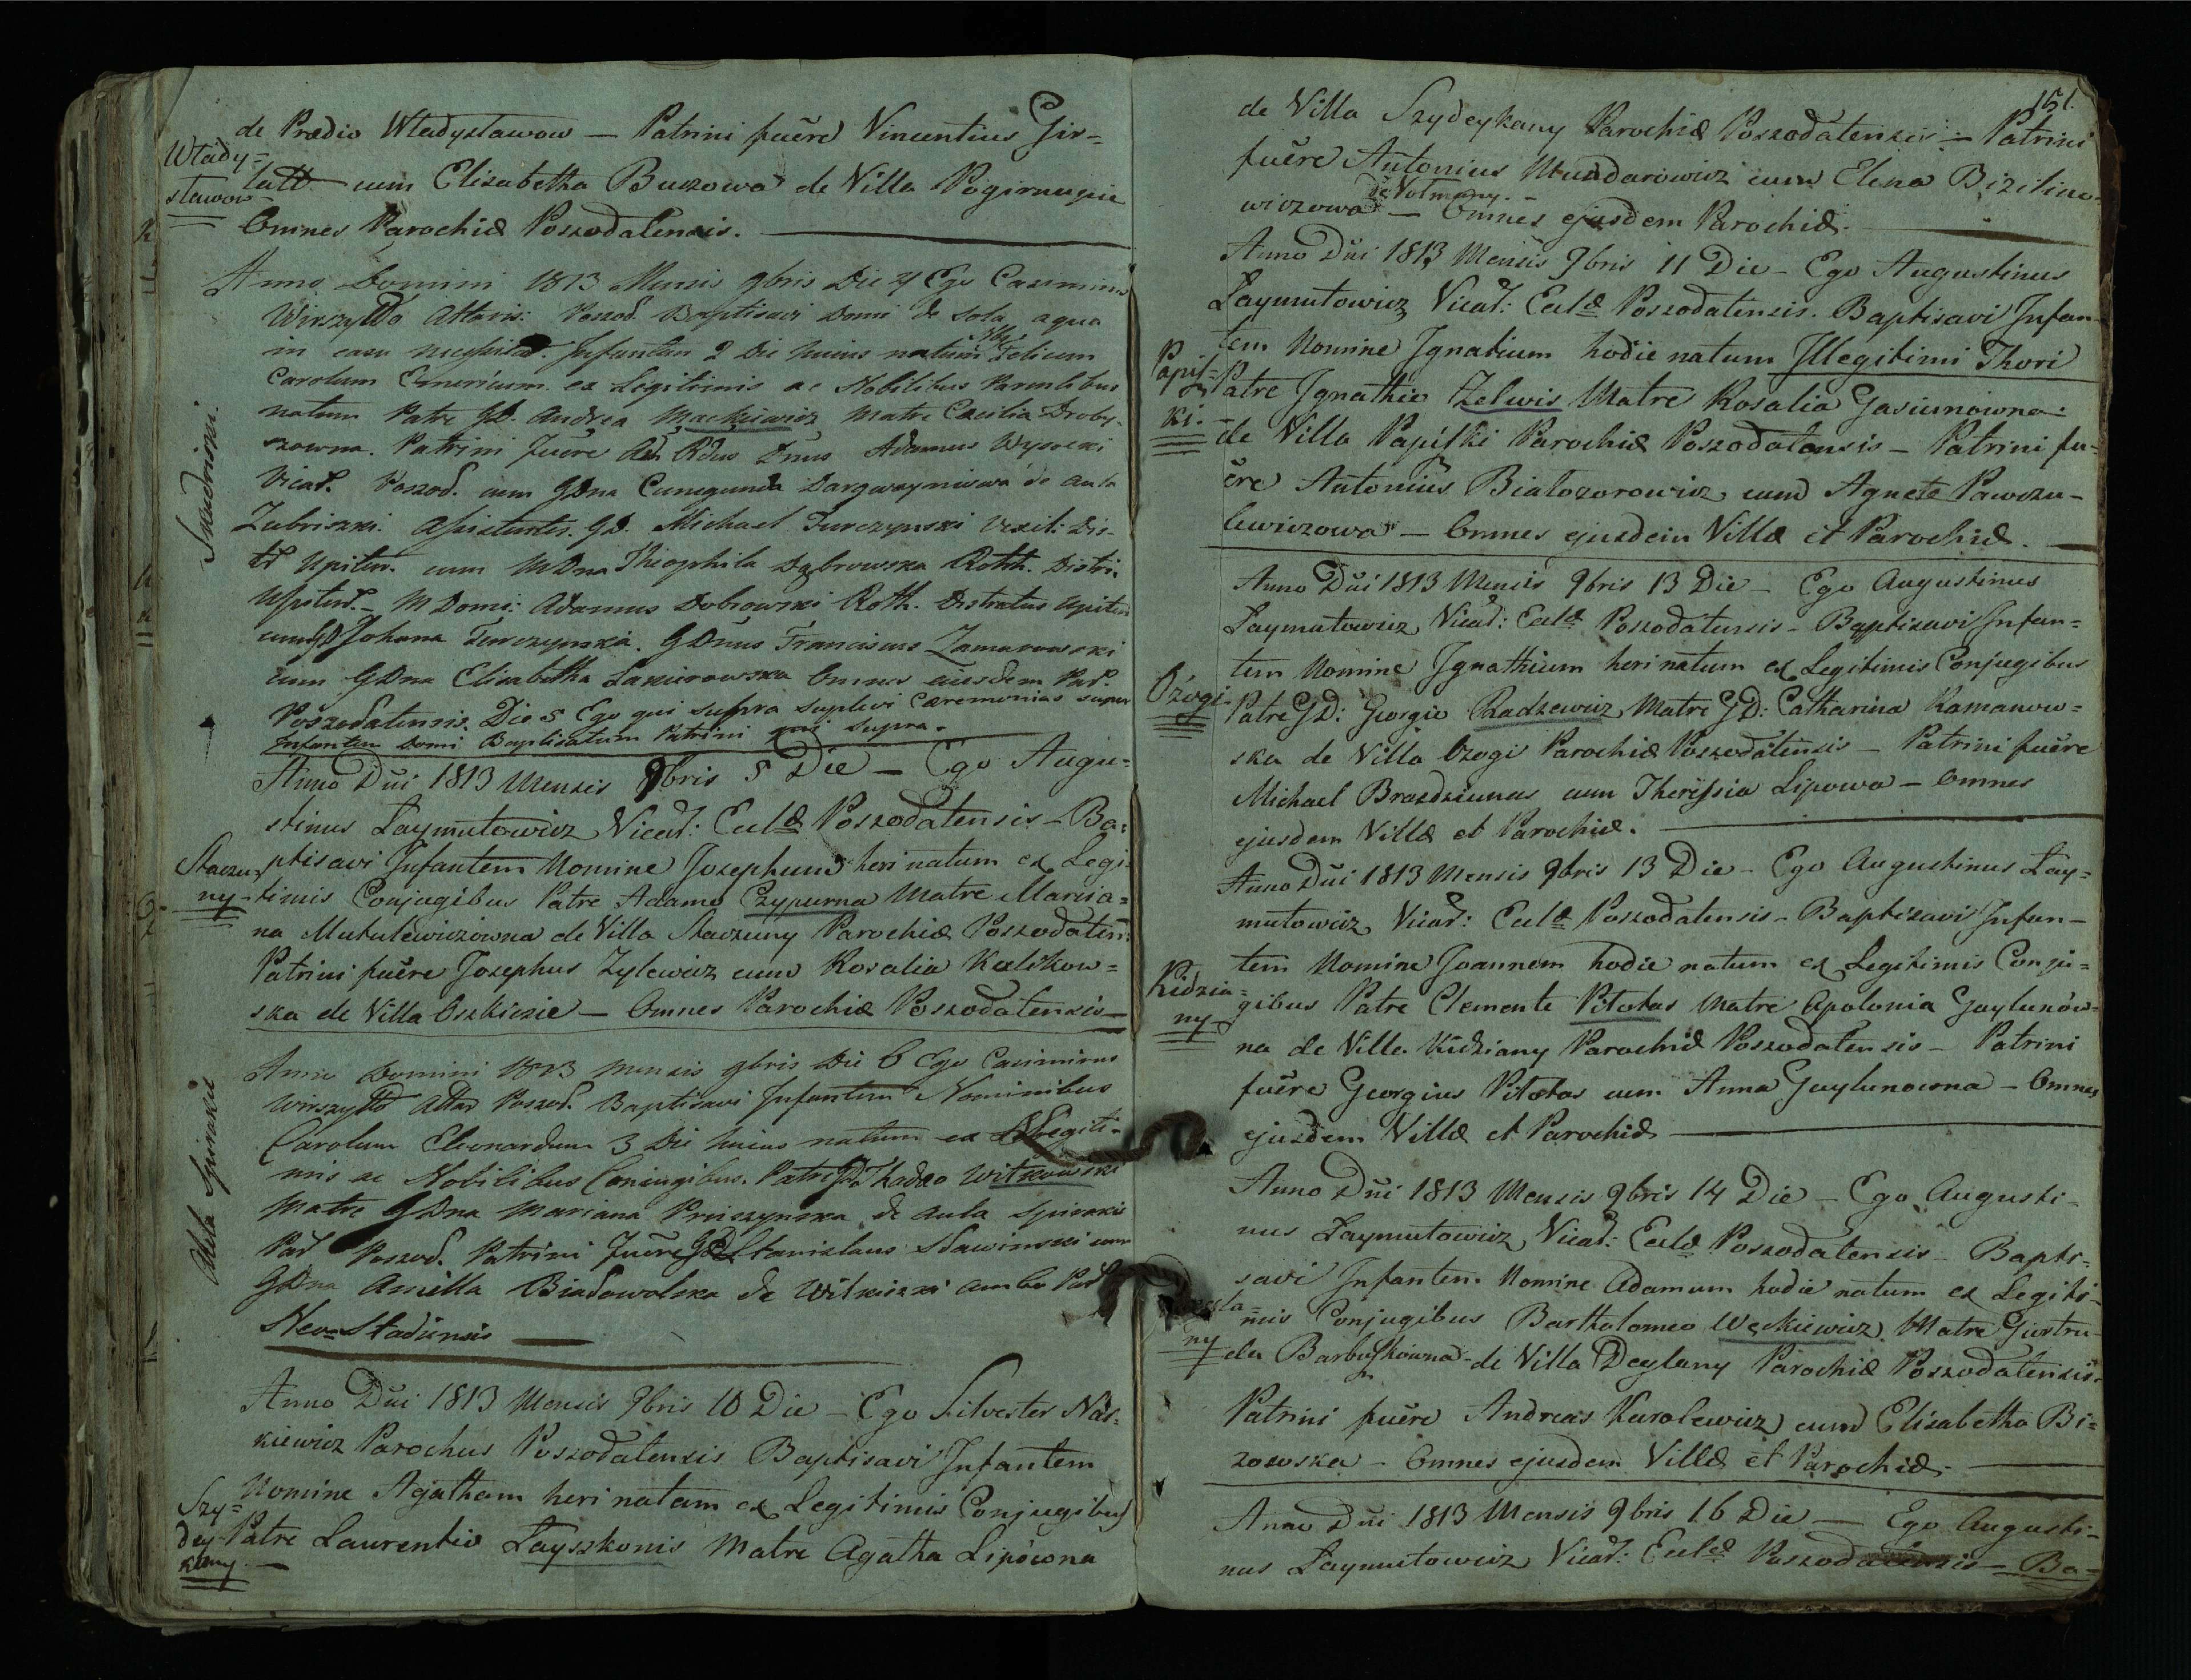 de Prædio Władysławow — Patrini fuêre Vincentius Gir=
Włady=
sławow
łatt cum Elisabetha Buzowa de Villa Pogirnupie
Omnes Parochiæ Poszodatensis.
Anno Domini 1813 Mensis 9bris Die 4 Ego Casimirus
Wirszyłło Altaris: Poszod. Baptisavi Domi de sola aqua
in casu Infantem 2 Die huius natum Felicem
Carolum Emericum ex Legitimis ac Nobilibus Parentibus
natum Patre GD. Andrea Mackiewicz Matre Cæcilia Droby-
szowna. Patrini fuêre Adm Rdus Dnus Adamus Wysocki
Vicar. Poszod. cum GDna Cunegunda de Aula
Zubriszki. Assistentes. GD. Michael Turczynski Vexil: Dis-
tr Upiten. cum MDna Theophila Dąbrowska Rotth. Distri.
MDomi: Adamus Dobrowski Roth. Districtus Upiten
cum GD Johana Turczynska. GDnus Franciscus Zamarowski
cum GDna Elisabetha Omnes eiusdem Par
Poszodatensis. Die 5 Ego qui supra suplevi Cæremonias super
Infantem Domi Baptisatum Patrini qui supra.
Anno Dñi 1813 Mensis 9bris 5 Die — Ego Augu=
stinus Laymutowicz Vicar: Eccłæ Poszodatensis — Ba=
Staczu=
ny
ptisavi Infantem Nomine Josephum heri natum ex Legi-
timis Conjugibus Patre Adamo Czypurna Matre Maria=
na Mutulewiczowna de Villa Staczuny Parochiæ Poszodaten:
Patrini fuêre Josephus Zylewicz cum Rosalia Kulikow=
ska de Villa Oszkicie — Omnes Parochiæ Poszodatensis —
Anno Domini 1813 Mensis 9bris Die 6 Ego Casimirus
Wirszyłło Altar Poszod. Baptisavi Infantem Nominibus
Carolum Eleonardum 3 Die huius natum ex Legiti-
mis ac Nobilibus Coniugibus. Patre GD. Thadeo Witkowski
Matre GDna Mariana Pruszynska de Aula Spirakie
Par Poszod. Patrini fuêre GD Stanislaus Sławinski cum
GDna Aniella Biadowolska de Wilkiszki ambo Par
Neo-Stadiensis
Anno Dñi 1813 Mensis 9bris 10 Die — Ego Silvester Nar-
kiewicz Parochus Poszodatensis Baptisavi Infantem
Szy=
dey-
kany.
Nomine Agatham heri natam ex Legitimis Conjugibus
Patre Laurentio Layszkonis Matre Agatha Lipówna
151.
de Villa Szydeykany Parochiæ Poszodatensis — Patrini
fuêre Antonius Mundarowicz cum Elena Bizitino-
de Volmany.
wiczowa — Omnes ejusdem Parochiæ.
Anno Dñi 1813 Mensis 9bris 11 Die — Ego Augustinus
Laymutowicz Vicar: Eccłæ Poszodatensis. Baptisavi Infan-
tem Nomine Ignatium hodie natum Illegitimi Thori
Papis-
ki.
Patre Ignathio Zelwis Matre Rosalia Gasiunowna
de Villa Papiski Parochiæ Poszodatensis — Patrini fu-
êre Antonius Białozorowicz cum Agnete Pawszu-
lewiczowa — Omnes ejusdem Villæ et Parochiæ.
Anno Dñi 1813 Mensis 9bris 13 Die — Ego Augustinus
Laymutowicz Vicar: Eccłæ Poszodatensis — Baptisavi Infan=
tem Nomine Ignathium heri natum ex Legitimis Conjugibus
Ozogi
Patre GD: Georgio Radzewicz Matre GD: Catharina Ramanow=
ska de Villa Ozogi Parochiæ Poszodatensis — Patrini fuêre
Michael Brazdziunas cum Theressia Lipowa — Omnes
ejusdem Villæ et Parochiæ.
Anno Dñi 1813 Mensis 9bris 13 Die — Ego Augustinus Lay=
mutowicz Vicar: Eccłæ Poszodatensis — Baptisavi Infan-
tem Nomine Joannem hodie natum ex Legitimis Conju=
Kidzia=
ny
gibus Patre Clemente Pitotas Matre Apolonia Gaylunów=
na de Villa Kidziany Parochiæ Poszodatensis — Patrini
fuêre Georgius Pitotas cum Anna Gaylunowna — Omnes
ejusdem Villæ et Parochiæ
Anno Dñi 1813 Mensis 9bris 14 Die — Ego Augusti-
nus Laymutowicz Vicar: Eccłæ Poszodatensis — Bapti=
savi Infantem Nomine Adamum hodie natum ex Legiti-
ny
mis Conjugibus Bartholomeo Węckiewicz Matre Giertru-
da Barbuskowna de Villa Deylany Parochiæ Poszodatensis
Patrini fuêre Andreas Karolewicz cum Elisabetha Bi=
zowska — Omnes ejusdem Villæ et Parochiæ.
Anno Dñi 1813 Mensis 9bris 16 Die — Ego Augusti-
nus Laymutowicz Vicar: Eccłæ Poszodatensis — Ba=